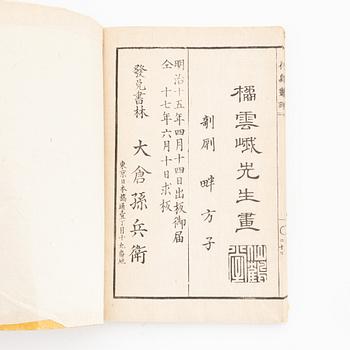 橘雲峨先生畫
剞劂 畔方子
明治十五年四月十四日出板御届
仝 十七年六月十日求板
發兌書林 大倉孫兵衛
東京日本橋通壹丁目十九番地